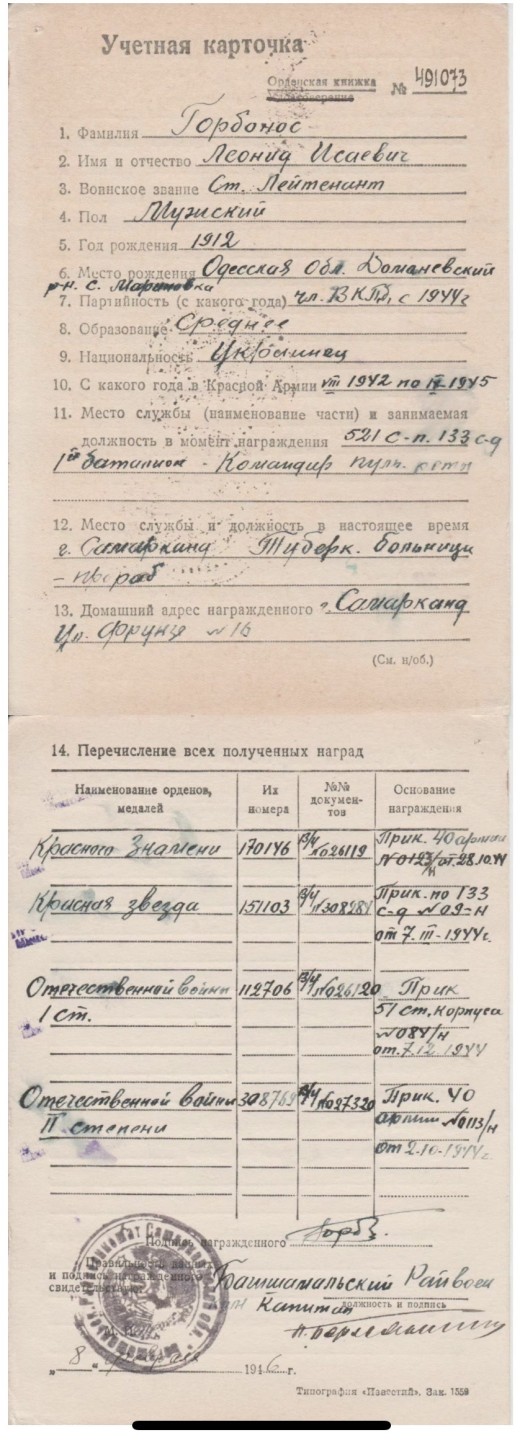 Учетная карточка
Орденская книжка
удостоверение
№ 491073
1. Фамилия Горбонос
2. Имя и отчество Леонид Исаевич
3. Воинское звание Ст. Лейтенант
4. Пол Мужский
5. Год рождения 1912
6. Место рождения Одесская обл. Доманевский
р-н. с. Мариновка
7. Партийность (с какого года) чл. ВКПб, с 1944г
8. Образование Среднее
9. Национальность Украинец
10. С какого года в Красной Армии VIII 1942 по IV-1945
11. Место службы (наименование части) и занимаемая
должность в момент награждения 521 с-п. 133 с-д
1й баталион - Командир пульроты
12. Место службы и должность в настоящее время
г. Самарканд Туберк. больница
- прораб
13. Домашний адрес награжденного г. Самарканд
Ул. Фрунзе № 16
(См. н/об.)
14. Перечисление всех полученных наград
Наименование орденов, медалей
Их номера
№№ документов
Основание награждения
Красного Знамени 170146 в/ч №026119 Прик. 40 армии
№0123/н от 28.10.44
Красная звезда 151103 в/ч №308284 Прик. по 133
с-д №09-н
от 7.III-1944г.
Отечественной войны 112706 в/ч №026120 Прик
1 ст. 51 ст. корпуса
№084/н
от 7.12.1944
Отечественной войны 308769 в/ч №027320 Прик. 40
II степени армии №0113/н
от 2.10-1944г.
Подпись награжденного
Правильность данных
и подпись награжденного
свидетельствую: Райвоен
Капитан
должность и подпись
„8“ 1946 г.
Типография «Известий». Зак. 1559